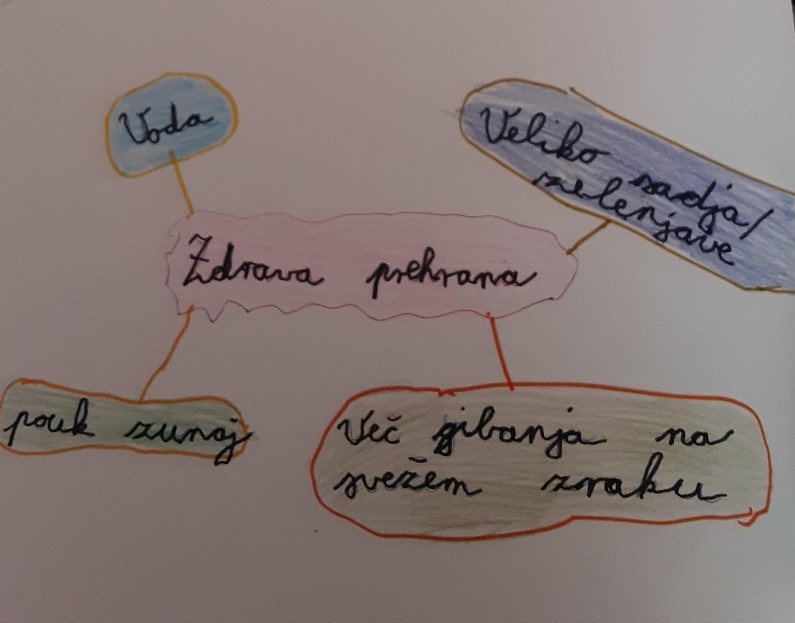 Voda
Veliko sadja/
zelenjave
Zdrava prehrana
pouk zunaj
Več gibanja na
svežem zraku